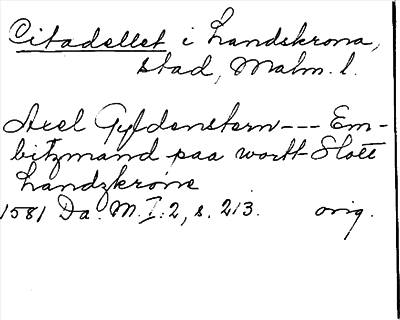 Citadellet i Landskrona,
stad, Malm. l.
Axel Gyldenstern --- Em-
bitzmand paa wortt Slott
Landzkrone
1581 Da. M. I: 2, s. 213. orig.